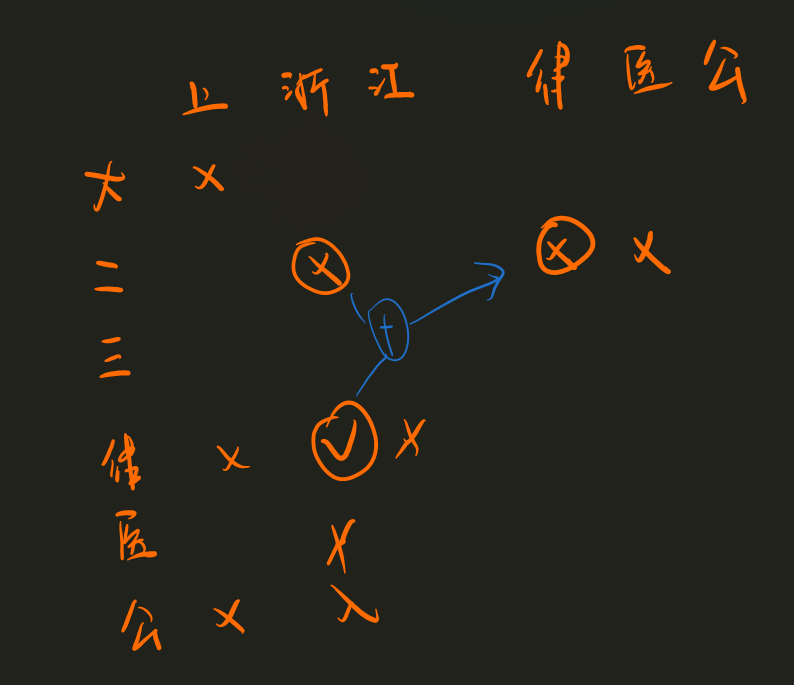 上 浙 江 律 医 公
大 ×
二 × × ×
+
三
律 × ✓ ×
医 ×
公 × ×